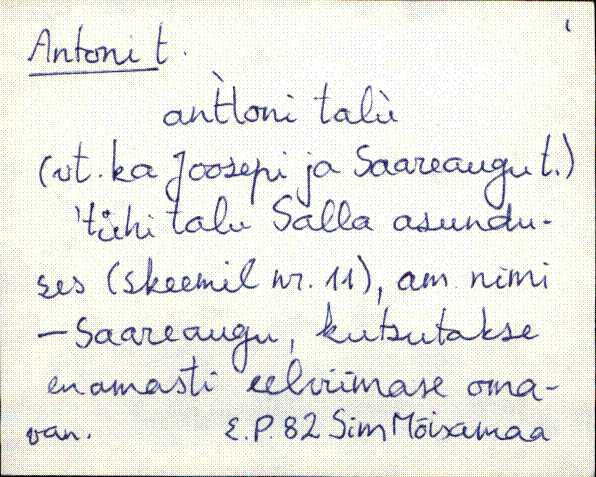 Antoni t.
an̄̀tτoni talù
(vt. ka Joosepi ja Saareaugu t.)
'tühi talu Salla asundu-
ses (skeemil nr. 11), am. nimi
– Saareaugu, kutsutakse
enamasti eelviimase oma-
van.
E.P. 82 Sim Mõisamaa